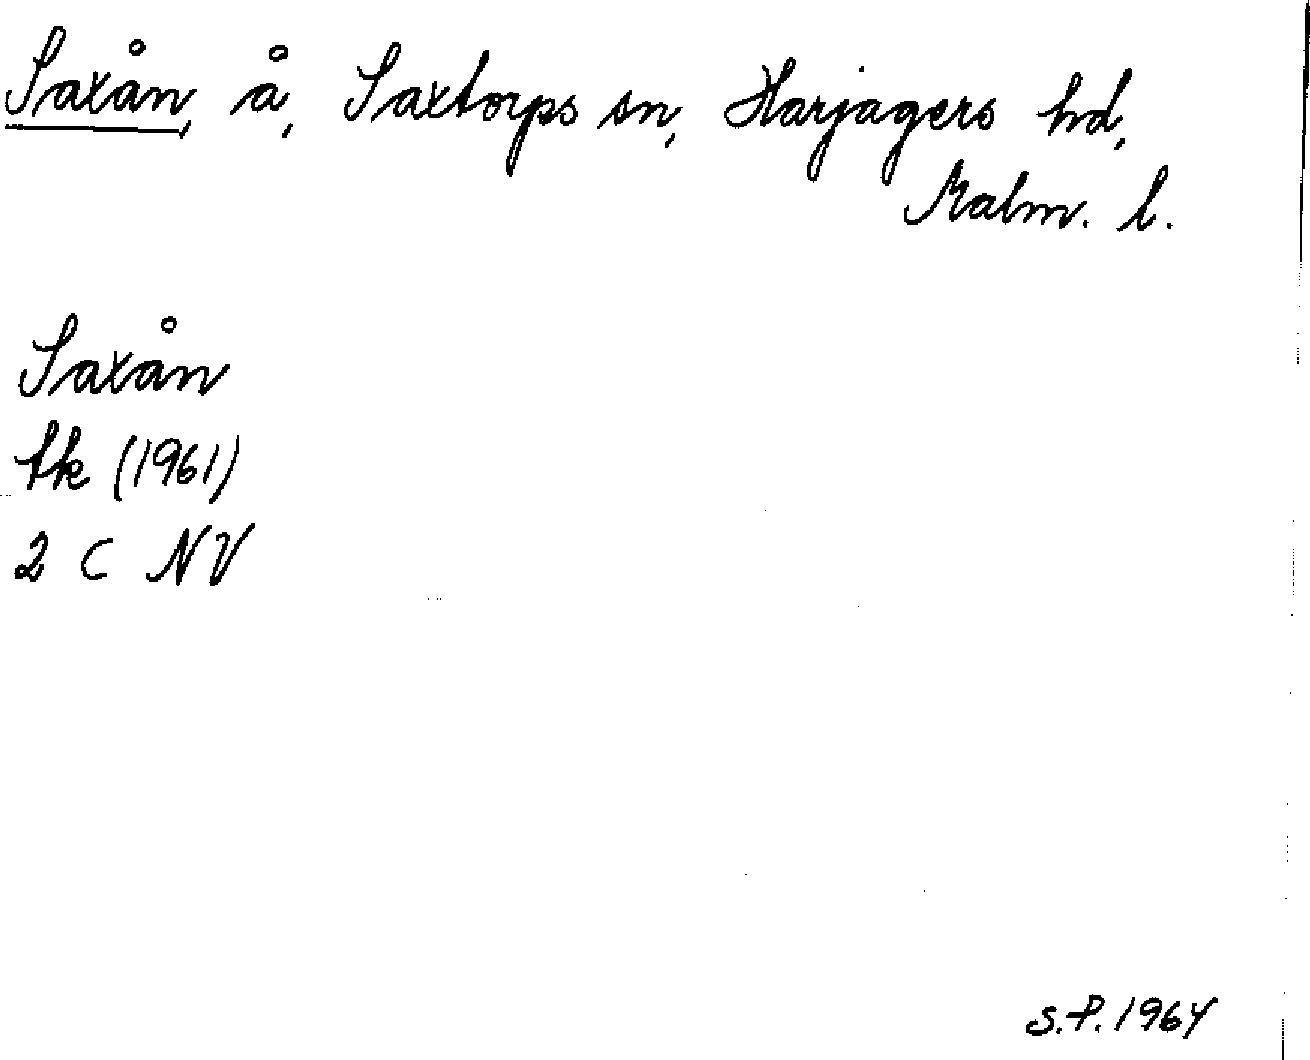 Saxån, å, Saxtorps sn, Harjagers hd,
Malm. l.
Saxån
tk (1961)
2 C NV
S.P. 1964